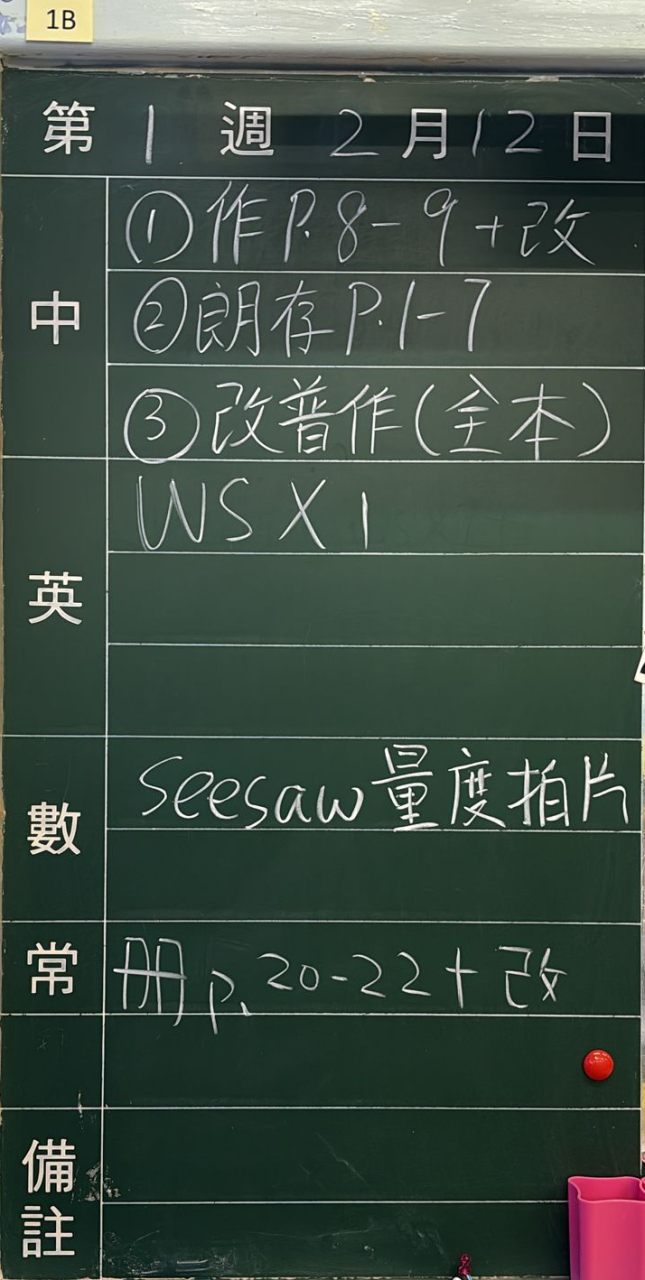 1B
第 1 週 2 月 12 日
中
①作P.8-9+改
②朗存P.1-7
③改普作(全本)
英
WS X 1
數
seesaw量度拍片
常
冊p.20-22+改
備註